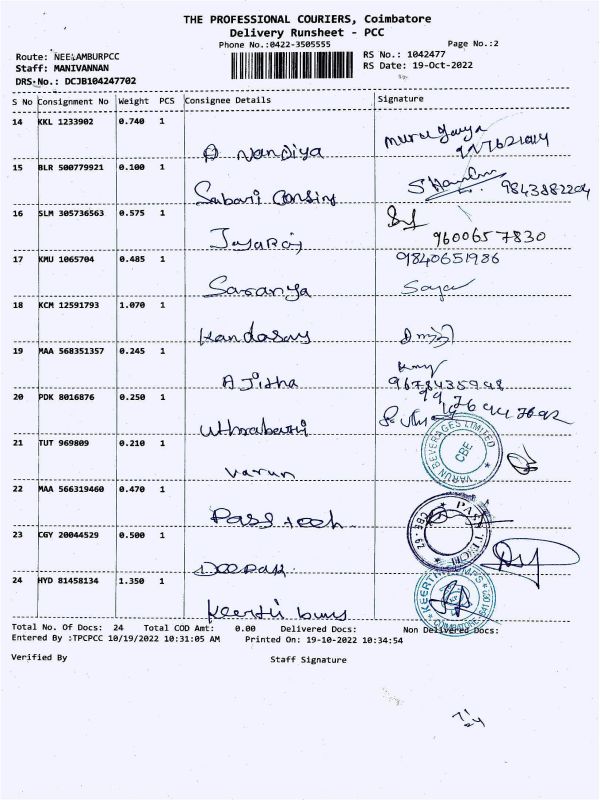 THE PROFESSIONAL COURIERS, Coimbatore
Delivery Runsheet - PCC
Phone No.:0422-3505555
Page No.:2
Route: NEELAMBURPCC
RS No.: 1042477
Staff: MANIVANNAN
RS Date: 19-Oct-2022
DRS-No.: DCJB104247702
S No Consignment No Weight PCS Consignee Details Signature
14 KKL 1233902 0.740 1
A Nandiya
15 BLR 500779921 0.100 1
Sabari 9843882204
16 SLM 305736563 0.575 1
JayaRaj 9600657830
17 KMU 1065704 0.485 1 9840651986
Saranya
18 KCM 12591793 1.070 1
Kandasay
19 MAA 568351357 0.245 1
Ajitha
20 PDK 8016876 0.250 1
21 TUT 969809 0.210 1
VARUN BEVERAGES LIMITED
CBE
Varun
22 MAA 566319460 0.470 1
Pass tech
PASS TECH
23 CGY 20044529 0.500 1
Deepak
24 HYD 81458134 1.350 1
Keerthi
COIMBATORE
Total No. Of Docs: 24 Total COD Amt: 0.00 Delivered Docs: Non Delivered Docs:
Entered By :TPCPCC 10/19/2022 10:31:05 AM Printed On: 19-10-2022 10:34:54
Verified By Staff Signature